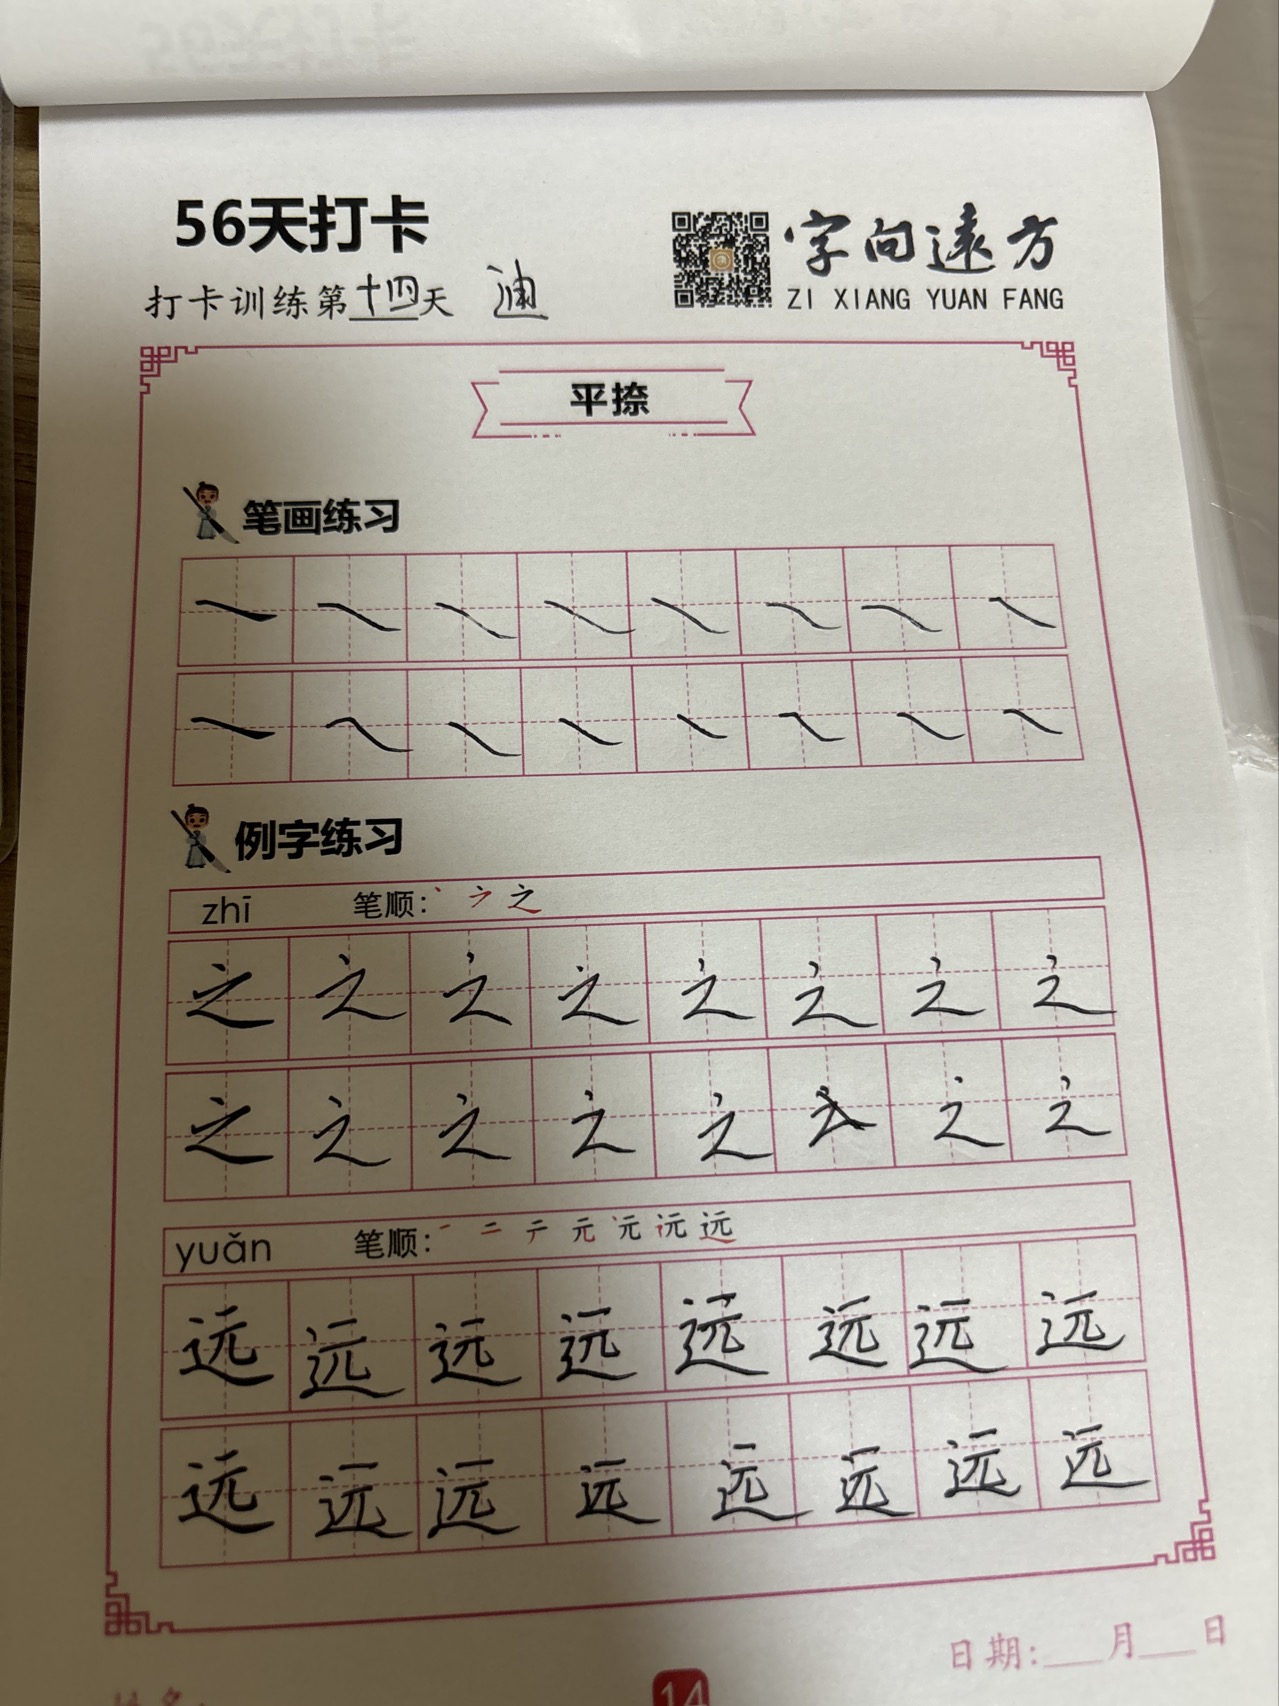 56天打卡
字向遠方
ZI XIANG YUAN FANG
打卡训练第十四天
平捺
笔画练习
例字练习
zhī 笔顺: 丶 之
之 之 之 之 之 之 之 之
之 之 之 之 之 之 之
yuǎn 笔顺: 一 二 テ 元 远
远 远 远 远 远 远 远 远
远 远 远 远 远 远 远 远
日期:___月___日
14